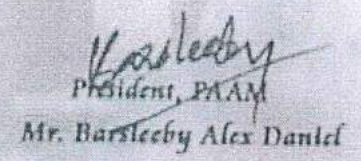 Barsleeby
President, PAAM
Mr. Barsleeby Alex Daniel